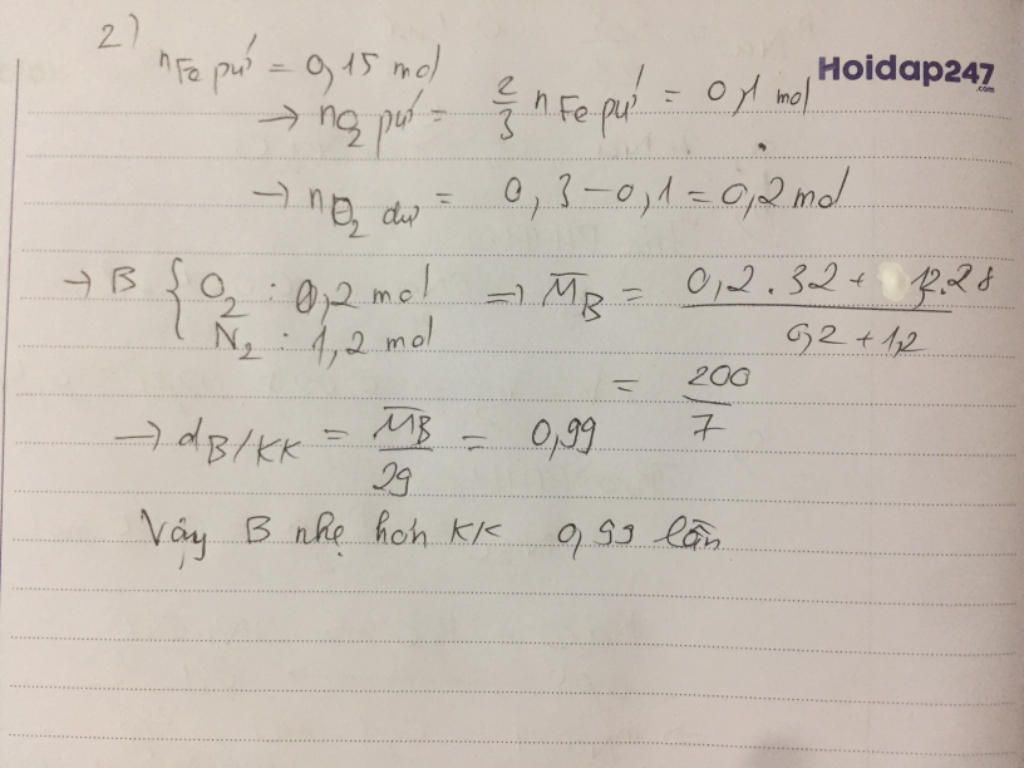 2)
nFe pứ = 0,15 mol
Hoidap247
.com
→ nO2 pứ = 2/3 nFe pứ = 0,1 mol
→ nO2 dư = 0,3 - 0,1 = 0,2 mol
→ B { O2 : 0,2 mol ⇒ M̅B = 0,2.32 + 1,2.28
N2 : 1,2 mol 0,2 + 1,2
= 200/7
→ dB/KK = M̅B/29 = 0,99
Vậy B nhẹ hơn KK 0,99 lần